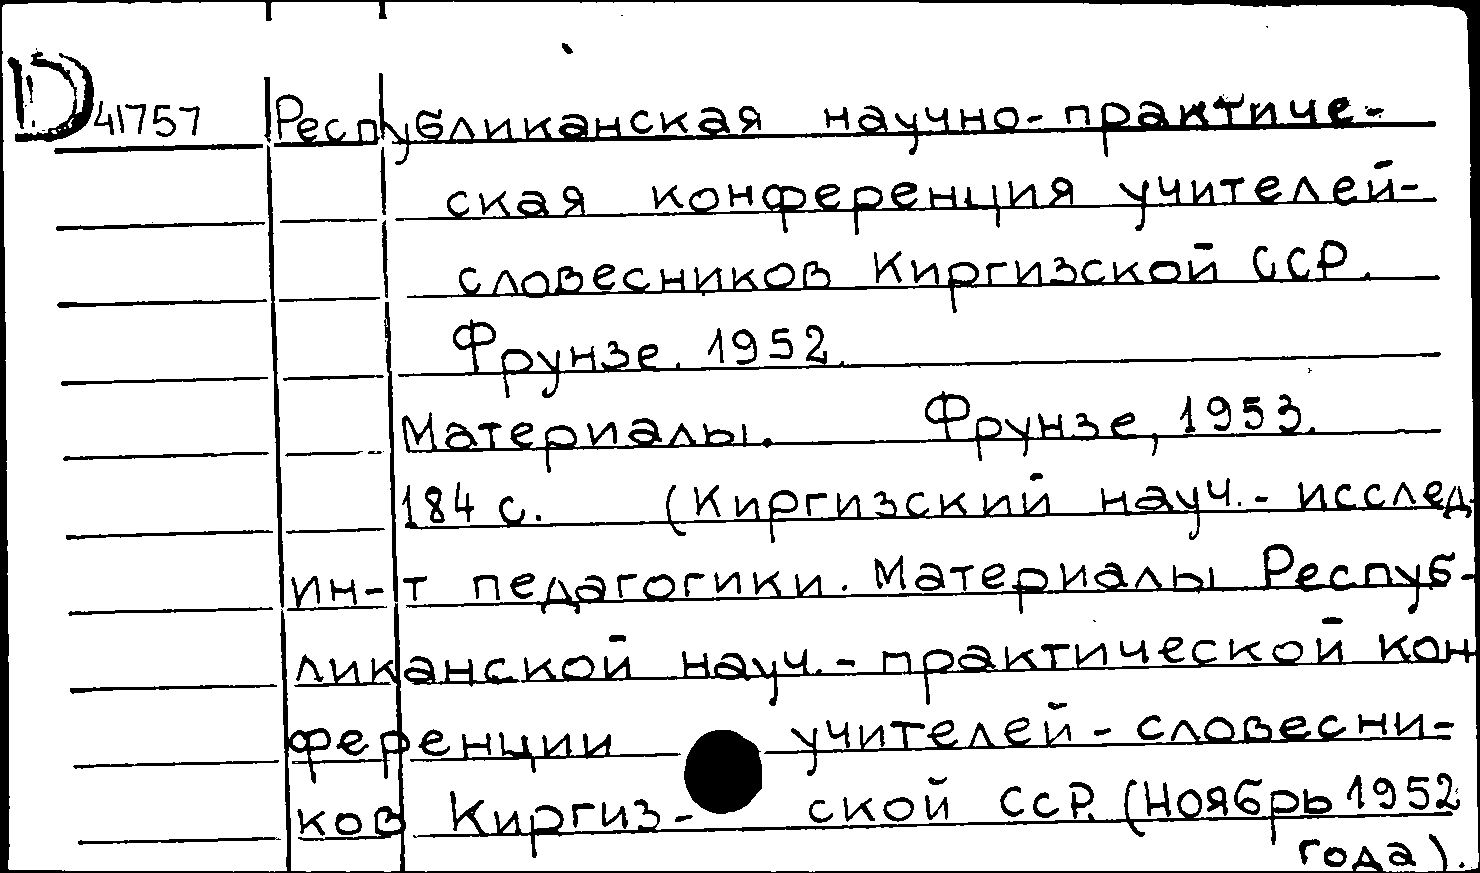 D 41757 Республиканская научно-практиче-
ская конференция учителей-
словесников Киргизской ССР.
Фрунзе. 1952.
Материалы. Фрунзе, 1953.
184 с. (Киргизский науч.-исслед.
ин-т педагогики. Материалы Респуб-
ликанской науч.-практической кон
ференции учителей-словесни-
ков Киргиз-ской ССР. (Ноябрь 1952
года).